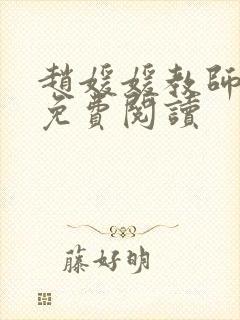 趙媛媛教師
免費閱讀
藤好明